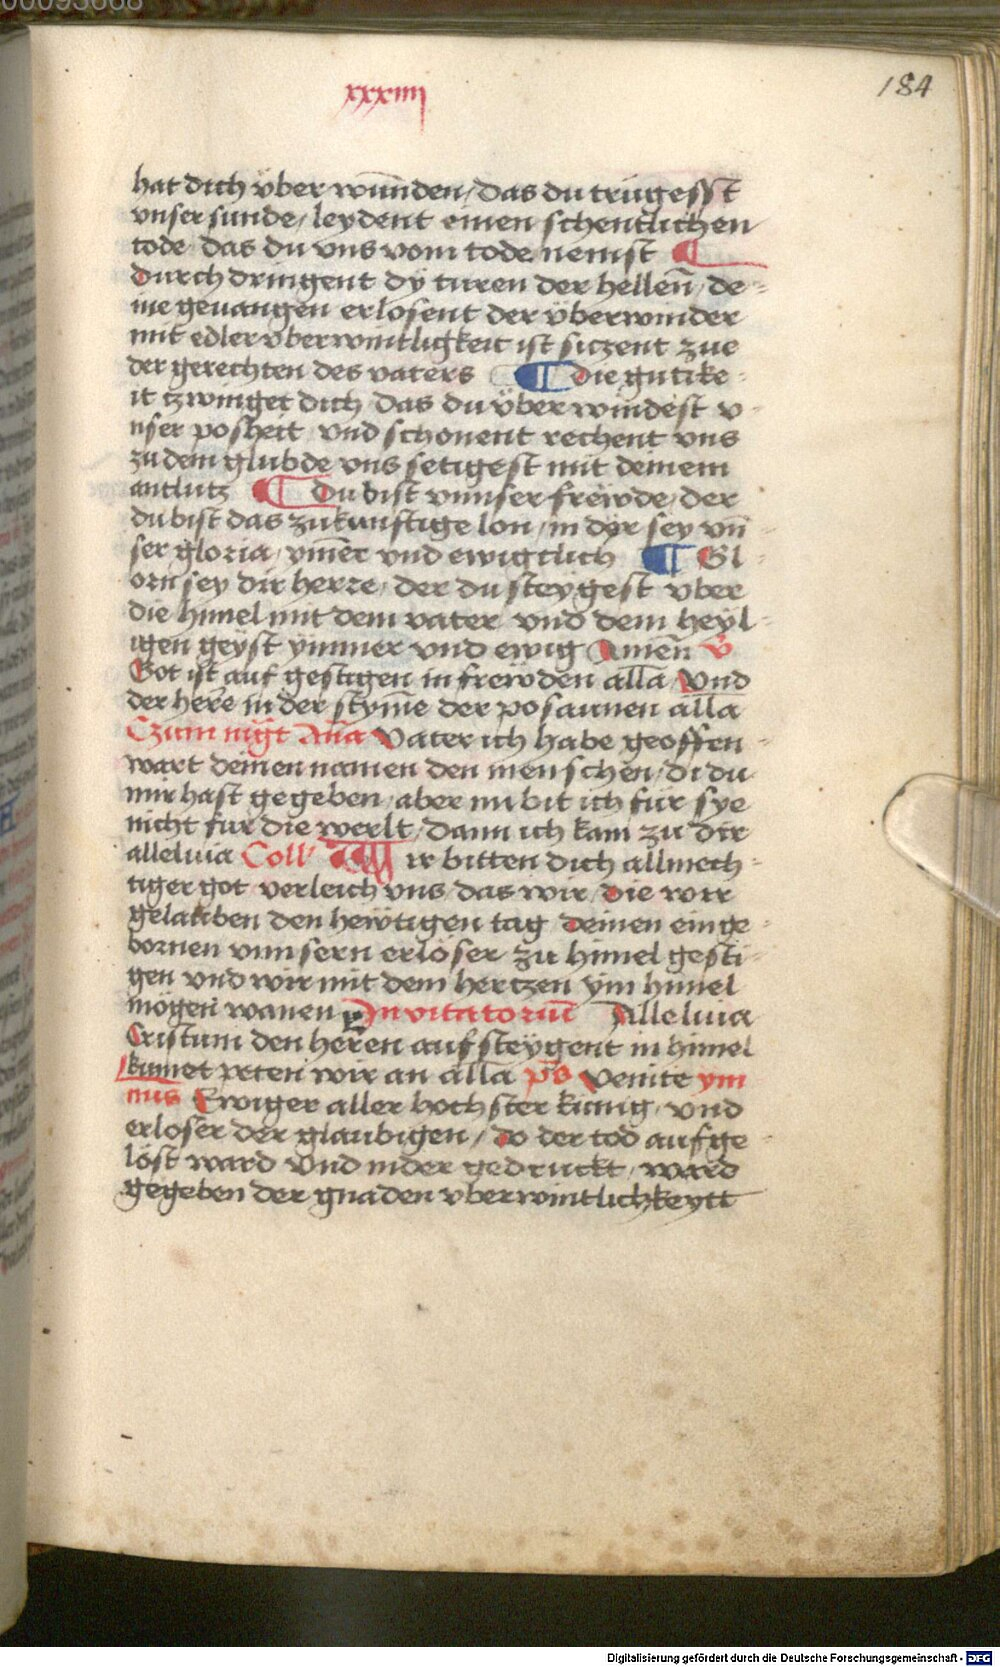 00093668
xxxiiij
184
hat dich vber wunden / das du trugesst
vnser sunde / leydent einen schentlichen
tode das du vns vom tode nemst ¶
durch dringent dÿ turen der hellen̄ / de-
ine geuangen erlosent der vberwinder
mit edler vberwintligkeit ist siczent zue
der gerechten des vaters ¶ die gutike-
it tzwinget dich das du vberwindest v-
nser posheit vnd schonent rechent vns
zu dem glubde vns setigest mit deinem
antlutz ¶ Du bist vnnser frewde / der
du bist das zukunftige lon / in dyr sey vn̄-
ser gloria / ym̄er vnd ewigtlich ¶ Gl-
orii sey dir herre / der du steygest vber
die himel mit dem vater vnd dem heyl-
igen geyst ymmer vnd ewig Amen̄ v̄
Got ist auf gestigen in frewden all̄a Vnd
der her̄e in der stym̄e der posaunen all̄a
Czum mg̃t An̄a Vater ich habe geoffen-
wart deinen namen den menschen / di du
mir hast gegeben / aber nu bit ich fur sye
nicht fur die werlt / dann ich kam zu dir
alleluia Coll' Wir bitten dich allmech-
tiger got verleich vns das wir / die wir
gelauben den hewtigen tag deinen einge-
bornen vnnsern erloser zu himel gesti-
gen vnd wir mit dem hertzen ym himel
mogen wanen Invitatoriu̅ Alleluia
Cristum den herren auf steygent in himel
kumet peten wir an all̄a p̄s Venite ym
nus Ewiger aller hochster kunig / vnd
erloser der glaubigen / do der tod aufge-
lost ward Vnd nider gedruckt / ward
gegeben der gnaden vberwintlichkeytt
Digitalisierung gefördert durch die Deutsche Forschungsgemeinschaft - DFG